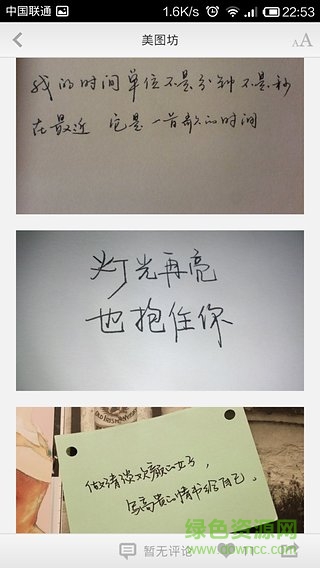 中国联通 1.6K/s 22:53
美图坊 AA
我的时间单位不是分钟不是秒
在最近 它是一首歌的时间
灯光再亮
也抱住你
做清淡欢颜的女子，
写高贵的情书给自己。
暂无评论 11
绿色资源网
www.downcc.com